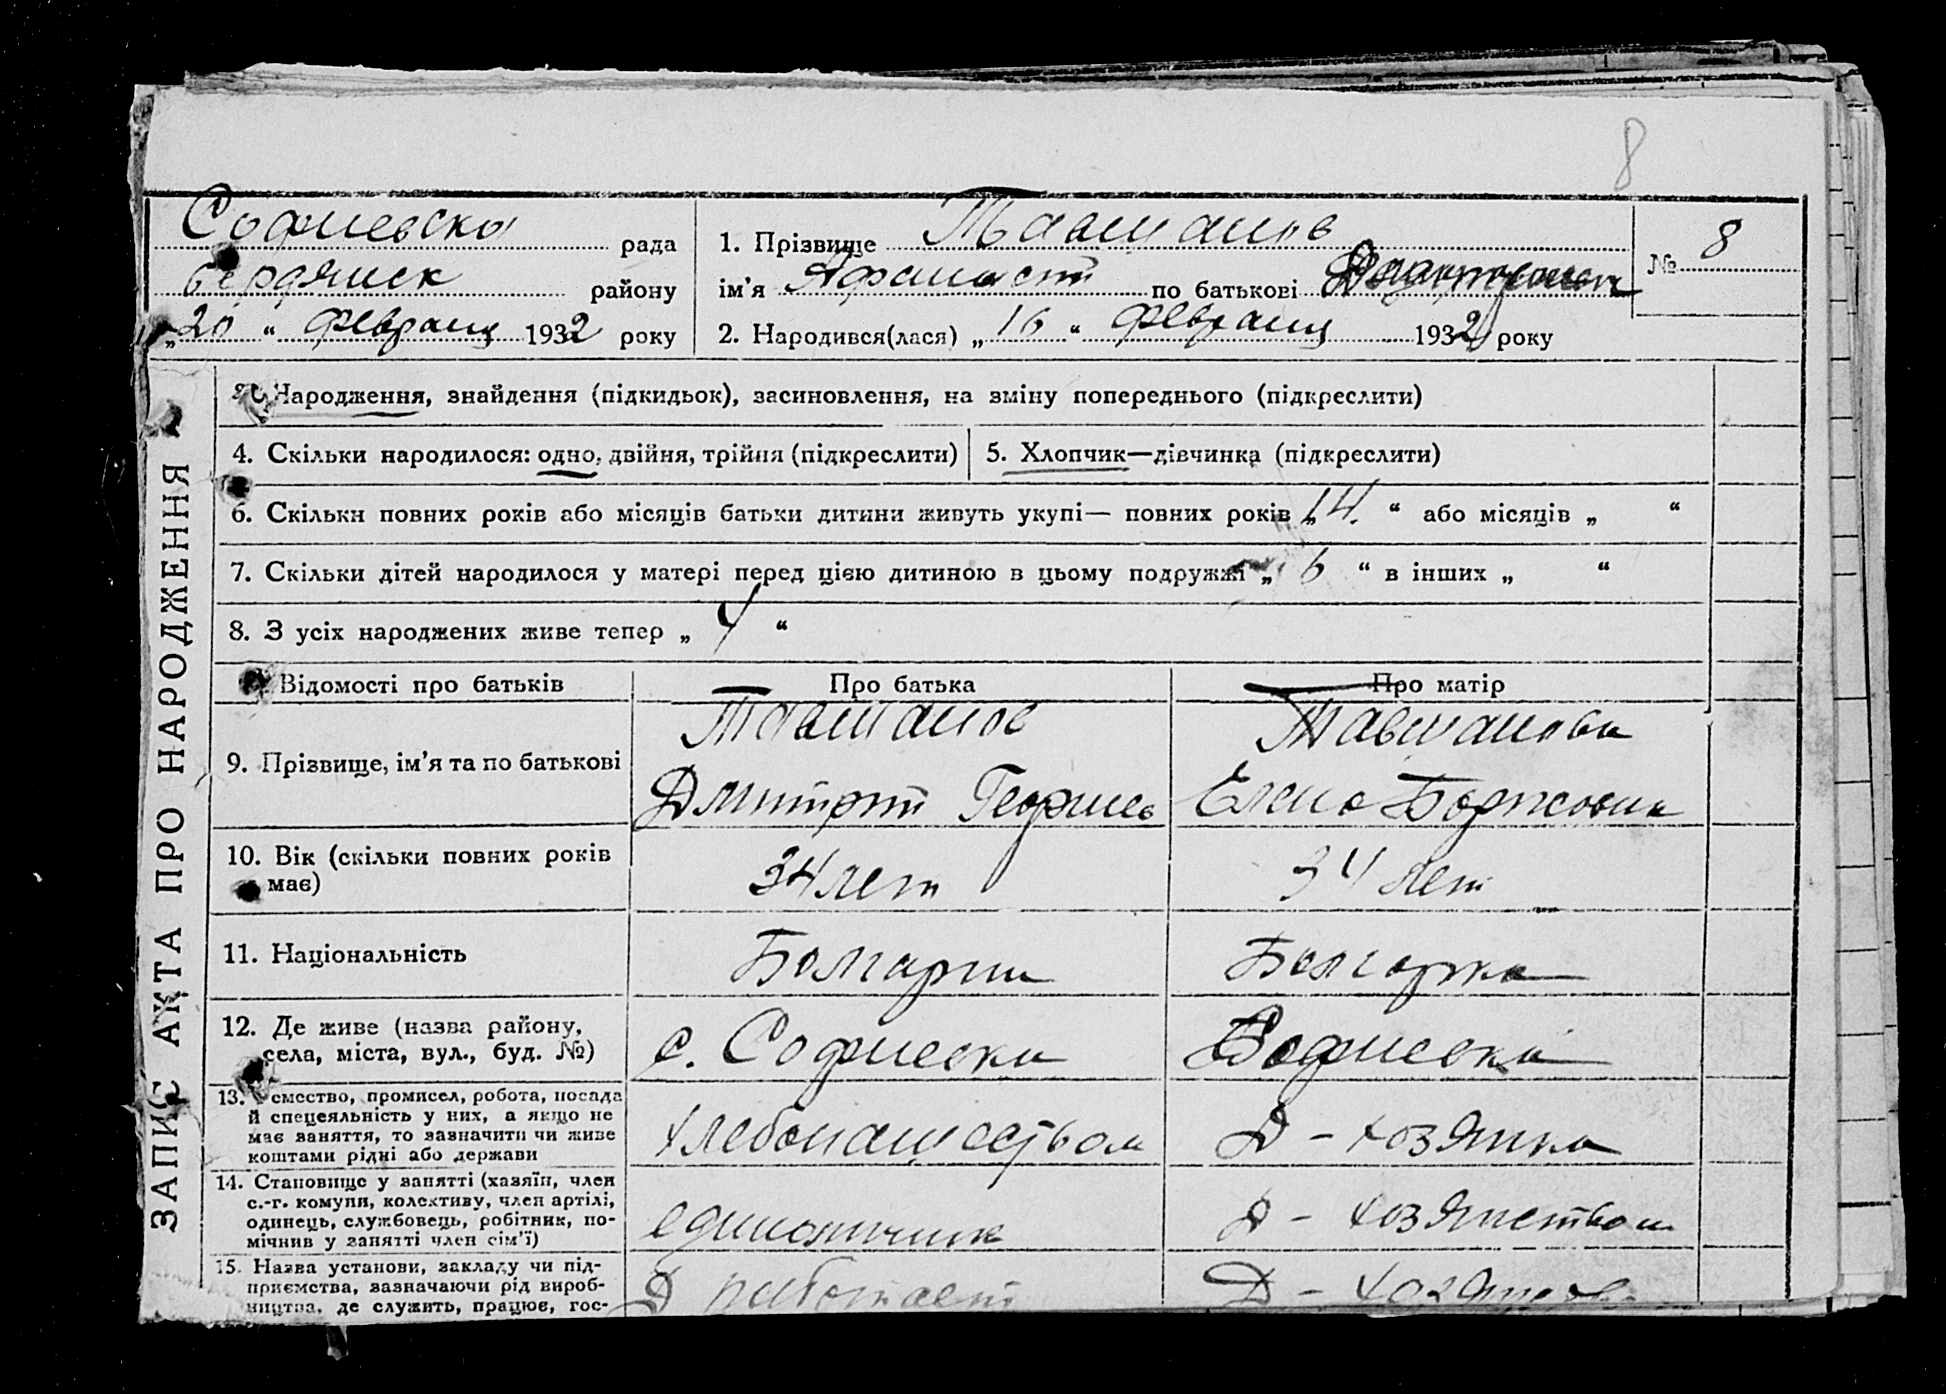 8
Софиевска рада
Бердянск району
„20“ Февраля 1932 року
1. Прізвище Тавшанов
ім’я Афанасий по батькові Дмитриевич
2. Народився(лася) „16“ Февраля 1932 року
№ 8
ЗАПИС АКТА ПРО НАРОДЖЕННЯ
3. Народження, знайдення (підкидьок), засиновлення, на зміну попереднього (підкреслити)
4. Скільки народилося: одно, двійня, трійня (підкреслити)
5. Хлопчик—дівчинка (підкреслити)
6. Скільки повних років або місяців батьки дитини живуть укупі— повних років „14.“ або місяців „ “
7. Скільки дітей народилося у матері перед цією дитиною в цьому подружжі „6“ в інших „ “
8. З усіх народжених живе тепер „4“
Відомості про батьків
Про батька
Про матір
9. Прізвище, ім’я та по батькові
Тавшанов
Дмитрий Георгиев
Тавшанова
Елена Борисовна
10. Вік (скільки повних років
має)
34 лет
34 лет
11. Національність
Болгарин
Болгарка
12. Де живе (назва району,
села, міста, вул., буд. №)
с. Софиевка
Софиевка
13. Ремество, промисел, робота, посада
й спецеяльність у них, а якщо не
має заняття, то зазначити чи живе
коштами рідні або держави
хлебопашеством
Д - хозяйка
14. Становище у занятті (хазяїн, член
с.-г. комуни, колективу, член артілі,
одинець, службовець, робітник, по-
мічнив у занятті член сім’ї)
единоличник
Д - хозяйством
15. Назва установи, закладу чи під-
приємства, зазначаючи рід вироб-
ництва, де служить, працює, гос-
работает
Д -